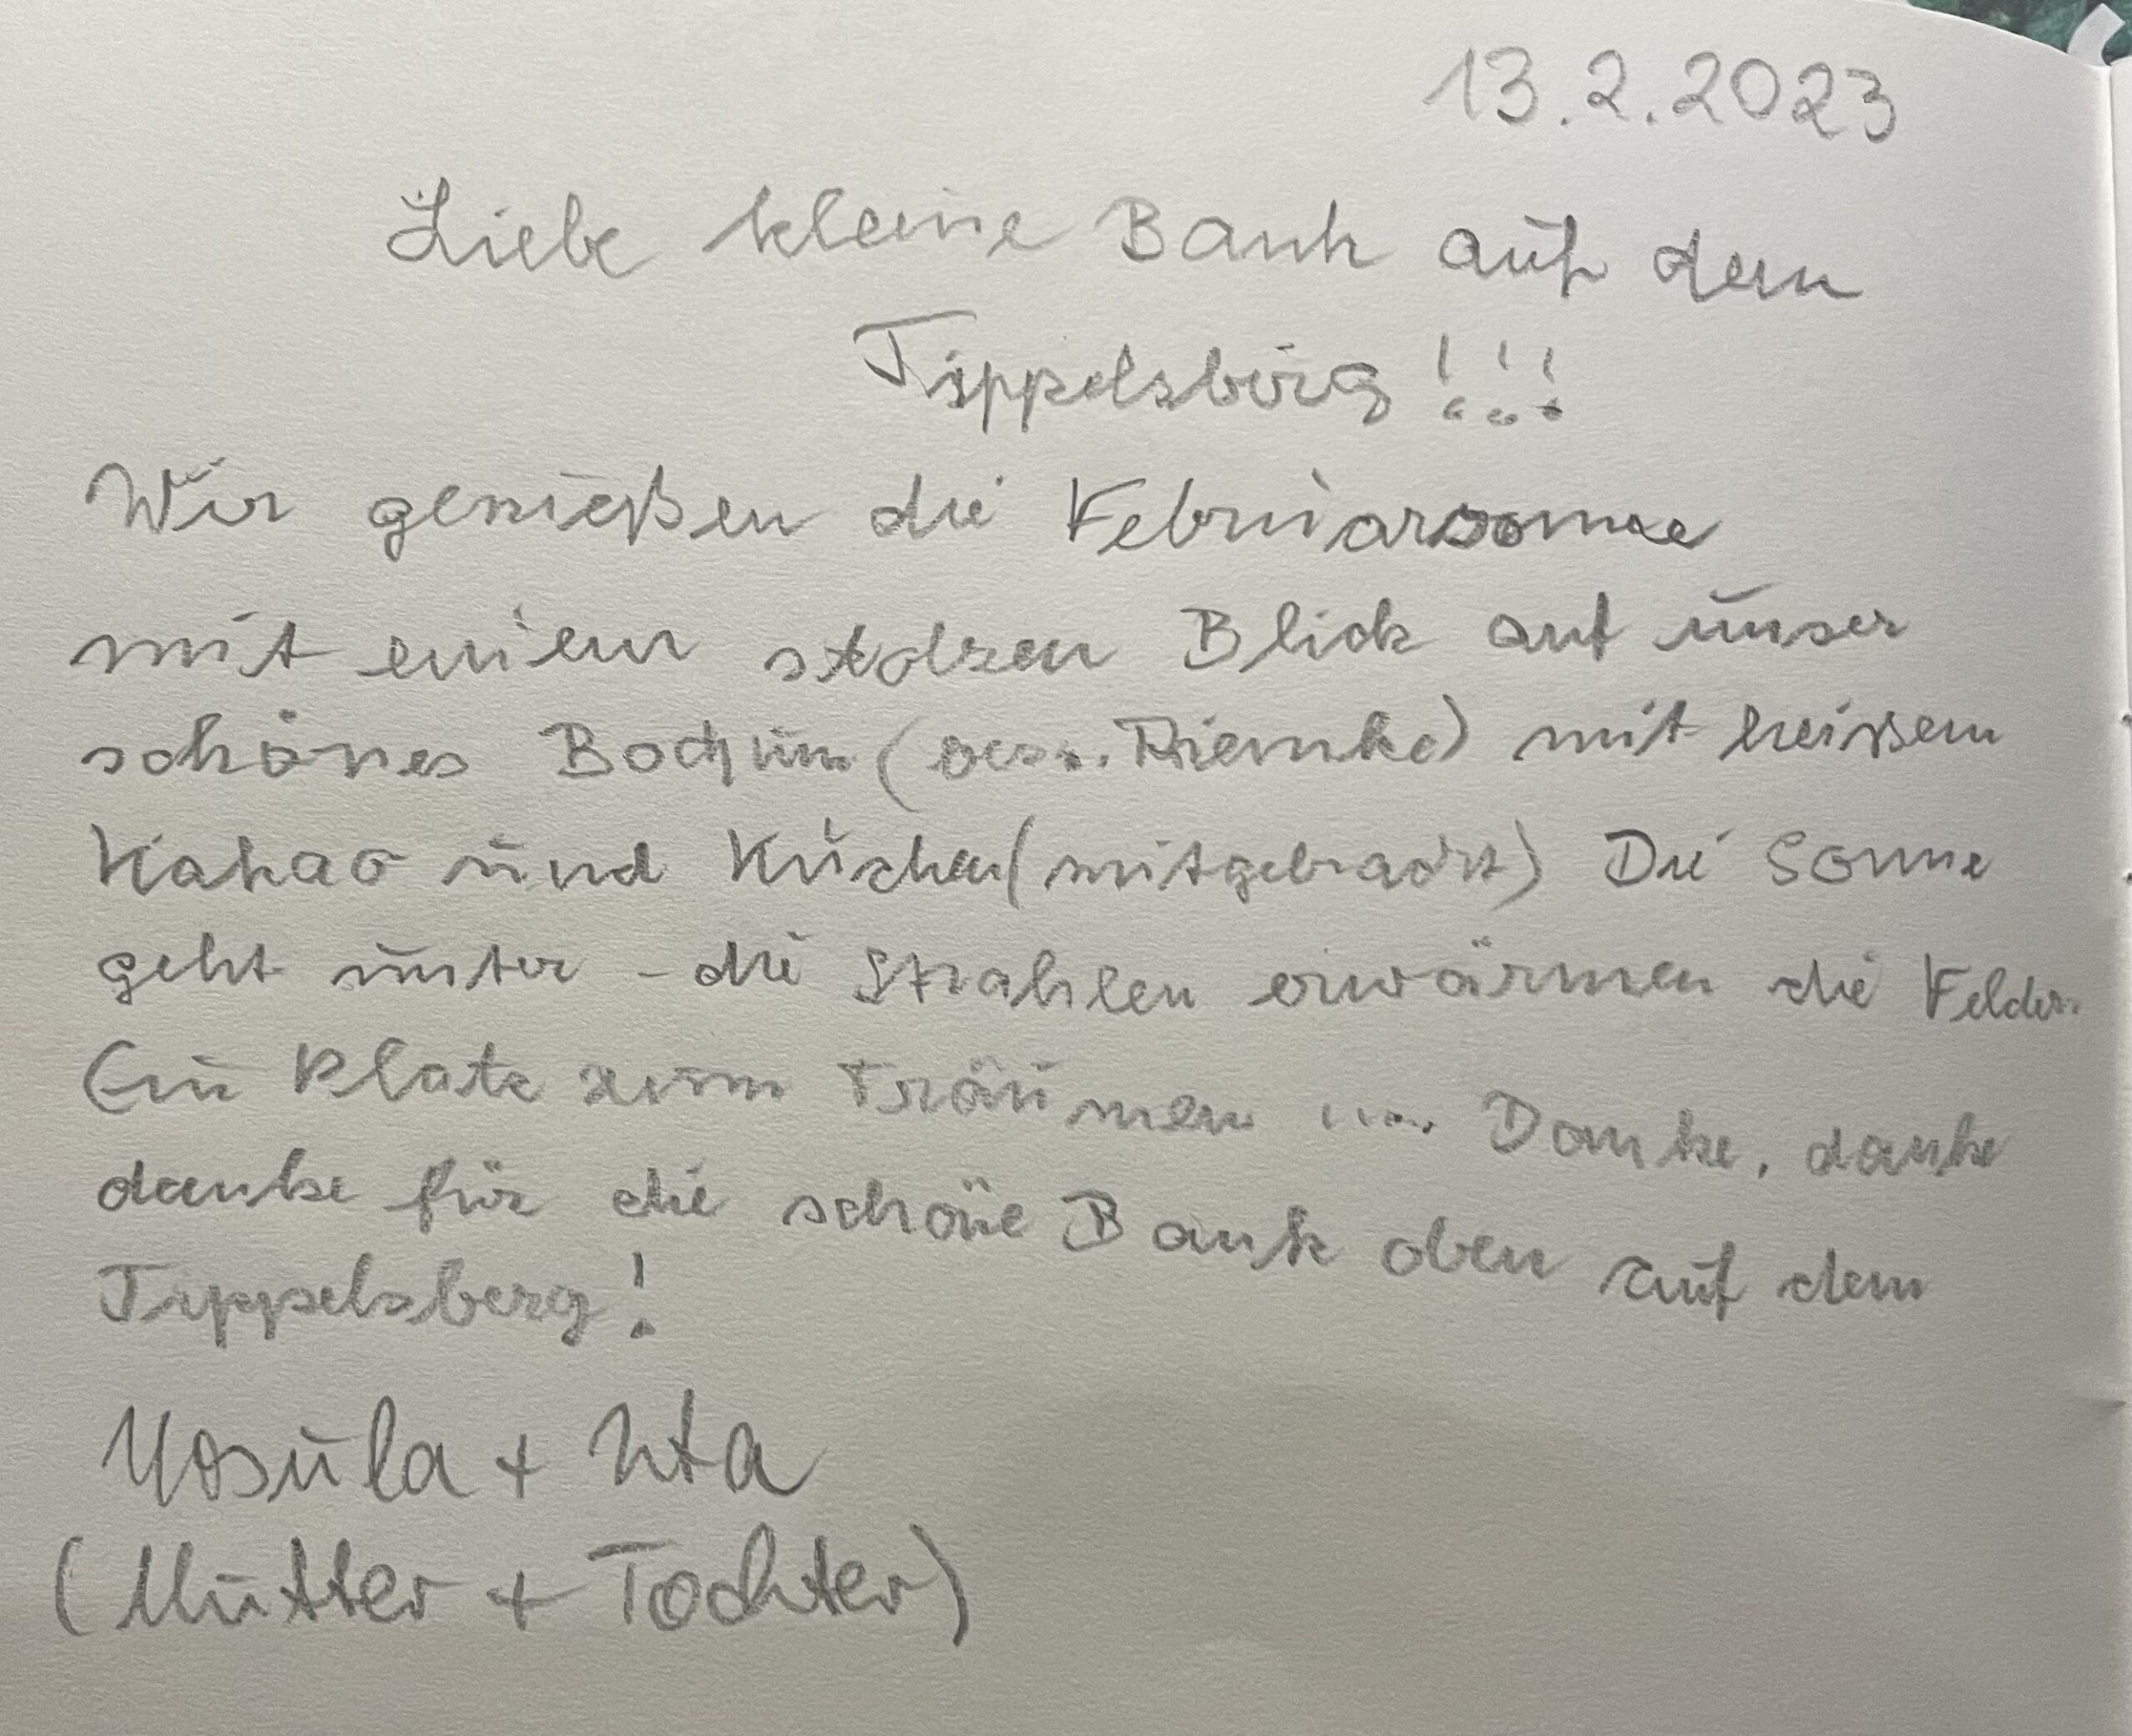 13.2.2023
Liebe kleine Bank auf dem
Tippelsberg!!!
Wir genießen die Februarsonne
mit einem stolzen Blick auf unser
schönes Bochum (bes. Riemke) mit heißem
Kakao und Kuchen (mitgebracht) Die Sonne
geht unter - die Strahlen erwärmen die Felder.
Ein Platz zum Träumen .... Danke, danke
danke für die schöne Bank oben auf dem
Tippelsberg!
Ursula + Uta
(Mutter + Tochter)